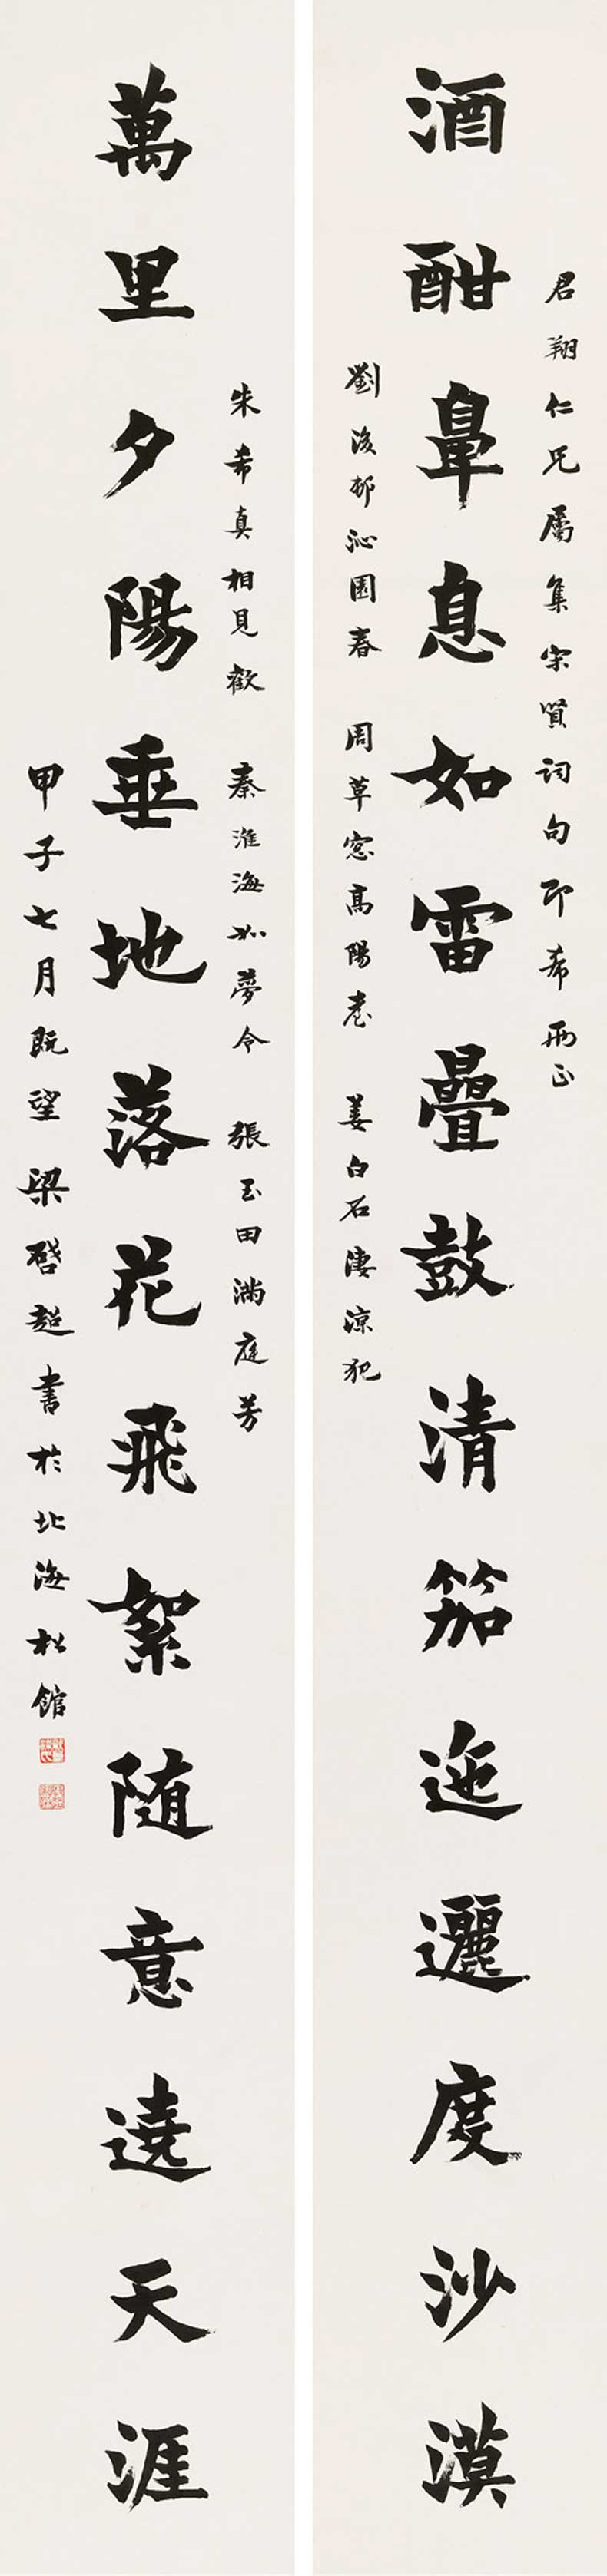 君翔仁兄屬集宋賢詞句即希兩正
酒酣鼻息如雷疊鼓清笳迤邐度沙漠
劉後邨沁園春 周草窗高陽臺 姜白石淒涼犯
朱希真相見歡 秦淮海如夢令 張玉田滿庭芳
萬里夕陽垂地落花飛絮随意遶天涯
甲子七月既望梁啓超書於北海松館